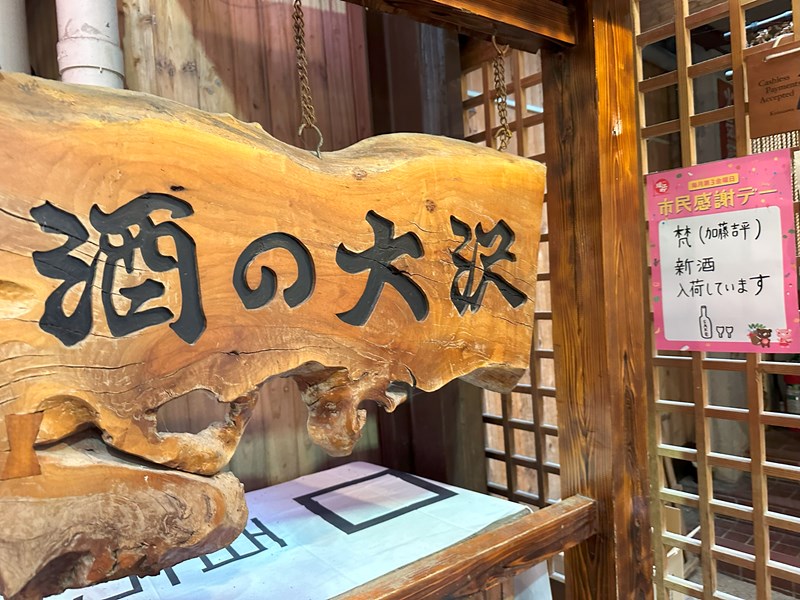 酒の大沢
Cashless
Payment
Accepted
毎月第3金曜日
市民感謝デー
梵(加藤吉平)
新酒
入荷しています